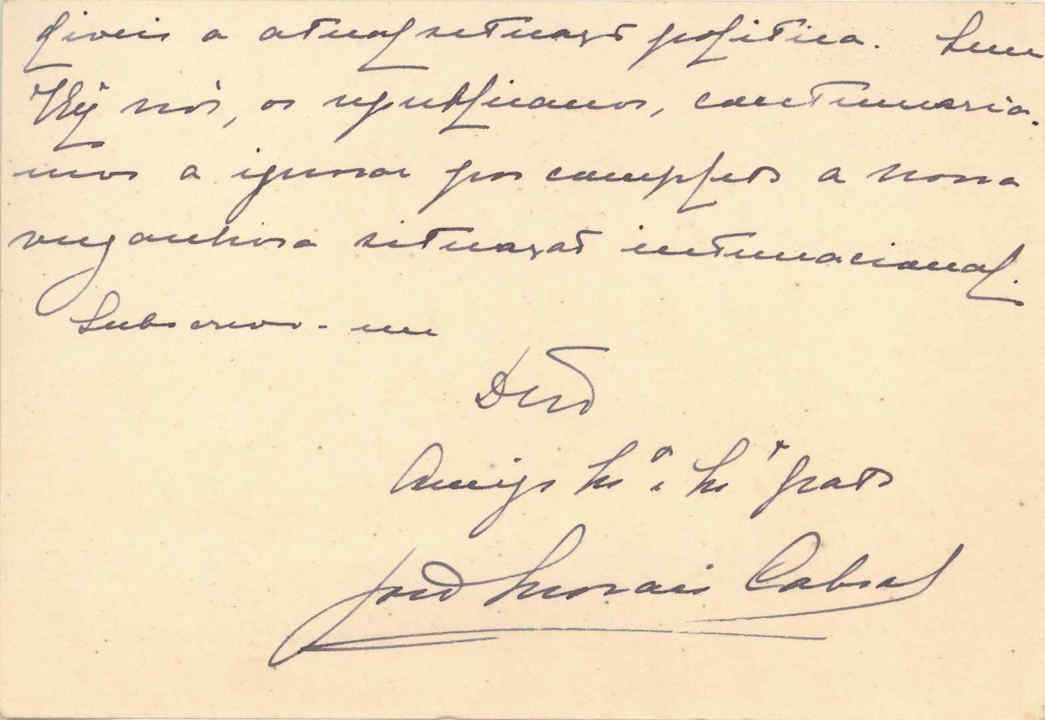 a atual situação politica. Sem
nós, os republicanos, continuaria-
mos a ignorar por completo a nossa
vergonhosa situação internacional.
Subscrevo-me
Amigo e grato
José Morais Cabral